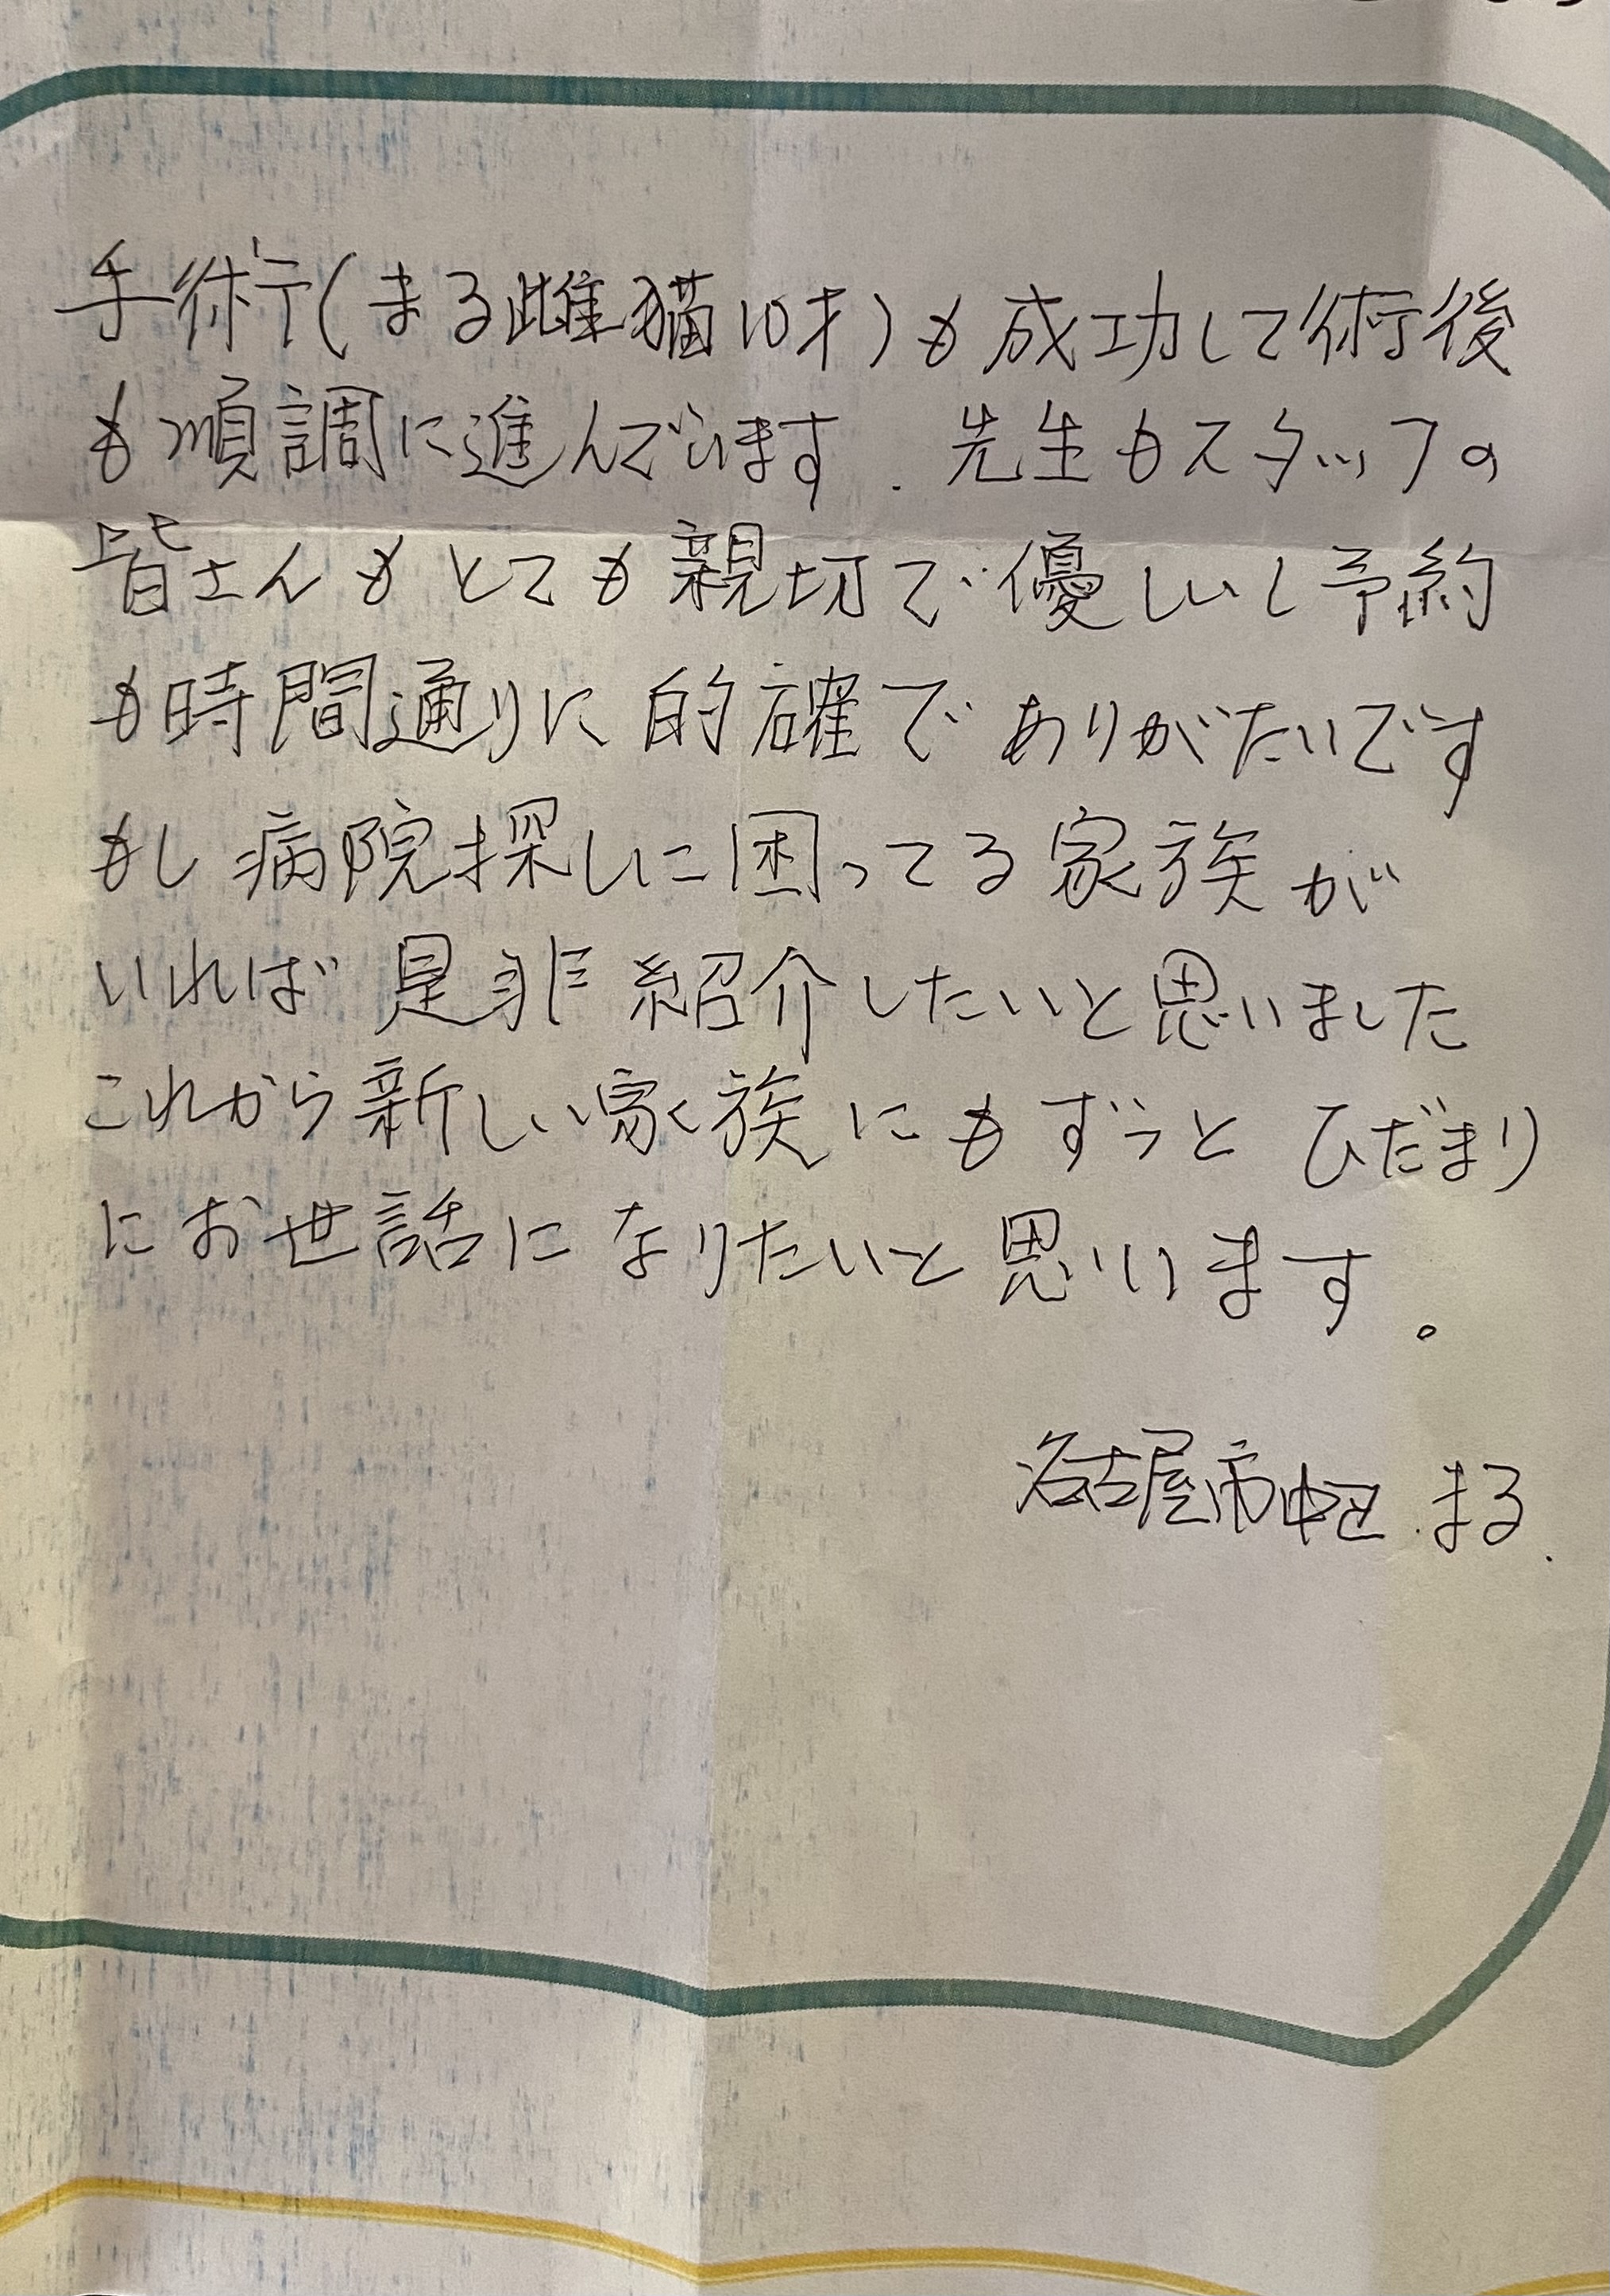 手術(まる雌猫10才)も成功して術後
も順調に進んでいます.先生もスタッフの
皆さんもとても親切で優しいし予約
も時間通りに的確でありがたいです
もし病院探しに困ってる家族が
いれば是非紹介したいと思いました
これから新しい家族にもずうっと ひだまり
にお世話になりたいと思います。
名古屋市中区 まる.